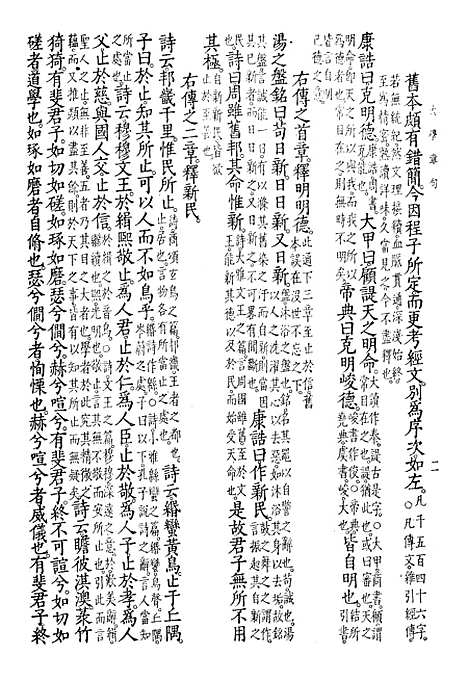 大學章句　二
舊本頗有錯簡今因程子所定而更考經文別爲序次如左。凡千五百四十六字。○凡傳文雜引經傳
若無統紀然文理接續血脈貫通深淺始終至爲精密熟讀詳味久當見之今不盡釋也
康誥曰克明德。康誥周書克能也大甲曰顧諟天之明命。大讀作泰諟古是字○大甲商書顧謂常目在之也諟猶此也或曰審也天之
明命卽天之所以與我而我之所以爲德者也常目在之則無時不明矣帝典曰克明峻德。峻書作俊○帝典堯典虞書峻大也皆自明也。結所引書
皆言自明己德之意
右傳之首章。釋明明德。此通下三章至止於信舊本誤在沒世不忘之下
湯之盤銘曰苟日新日日新又日新。盤沐浴之盤也銘名其器以自警之辭也苟誠也湯以人之洗濯其心以去惡如沐浴其身以去垢故銘
其盤言誠能一日有以滌其舊染之汙而自新則當因其已新者而日日新之又日新之不可略有間斷也康誥曰作新民。鼓之舞之之謂作言振起其自新之
民也詩曰周雖舊邦其命惟新。詩大雅文王之篇言周國雖舊至於文王能新其德以及於民而始受天命也是故君子無所不用
其極。自新新民皆欲止於至善也
右傳之二章釋新民。
詩云邦畿千里惟民所止。詩商頌玄鳥之篇邦畿王者之都也止居也言物各有所當止之處也詩云緡蠻黃鳥止于丘隅。
子曰於止知其所止可以人而不如鳥乎。緡詩作緜○詩小雅緜蠻之篇緡蠻鳥聲丘隅岑蔚之處子曰以下孔子說詩之辭言人當知
所當止之處也詩云穆穆文王於緝熙敬止。爲人君。止於仁。爲人臣。止於敬。爲人子止於孝。爲人
父止於慈。與國人交。止於信。於緝之於音烏○詩文王之篇穆穆深遠之意於歎美辭緝繼續也熙光明也敬止言其無不敬而安所止也引此而言
聖人之止無非至善五者乃其目之大者也學者於此究其精微之蘊而又推類以盡其餘則於天下之事皆有以知其所止而無疑矣詩云瞻彼淇澳菉竹
猗猗有斐君子如切如磋。如琢如磨。瑟兮僩兮。赫兮喧兮。有斐君子終不可諠兮。如切如
磋者道學也。如琢如磨者自脩也瑟兮僩兮者恂慄也赫兮喧兮者威儀也有斐君子終